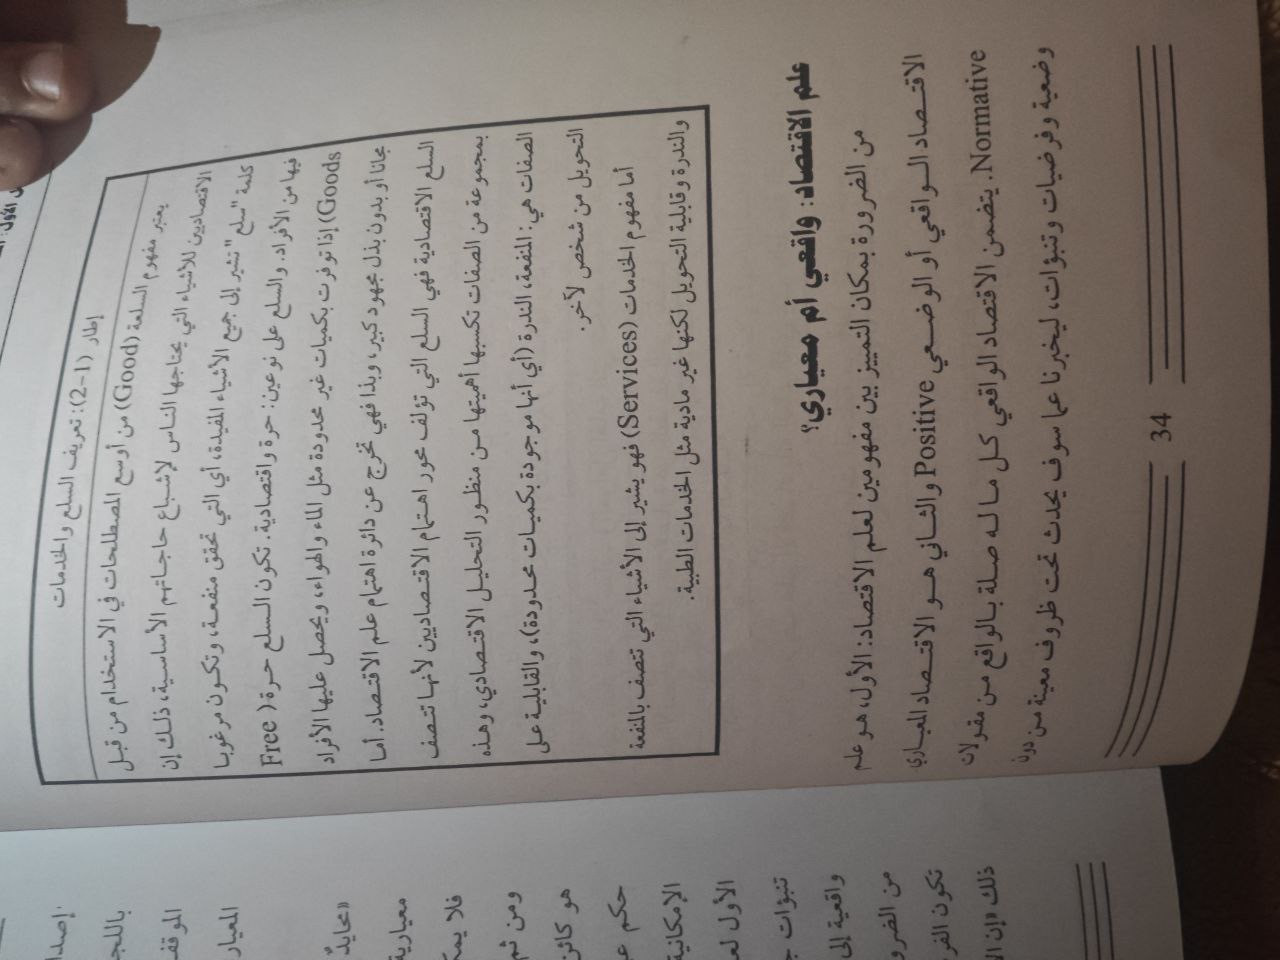 إطار (1-2): تعريف السلع والخدمات
يعتبر مفهوم السلعة (Good) من أوسع المصطلحات في الاستخدام من قبل
الاقتصاديين للأشياء التي يحتاجها الناس لإشباع حاجاتهم الأساسية، ذلك إن
كلمة "سلع" تشير إلى جميع الأشياء المفيدة، أي التي تحقق منفعة، وتكون مرغوبا
فيها من الأفراد. والسلع على نوعين: حرة واقتصادية. تكون السلع حرة (Free
Goods) إذا توفرت بكميات غير محدودة مثل الماء والهواء، ويحصل عليها الأفراد
مجانا أو بدون بذل مجهود كبير، وبذا فهي تخرج عن دائرة اهتمام علم الاقتصاد. أما
السلع الاقتصادية فهي السلع التي تؤلف محور اهتمام الاقتصاديين لأنها تتصف
بمجموعة من الصفات تكسبها أهميتها من منظور التحليل الاقتصادي، وهذه
الصفات هي: المنفعة، الندرة (أي أنها موجودة بكميات محدودة)، والقابلية على
التحويل من شخص لآخر.
أما مفهوم الخدمات (Services) فهو يشير إلى الأشياء التي تتصف بالمنفعة
والندرة وقابلية التحويل لكنها غير مادية مثل الخدمات الطبية.
علم الاقتصاد: واقعي أم معياري؟
من الضرورة بمكان التمييز بين مفهومين لعلم الاقتصاد: الأول، هو علم
الاقتصاد الواقعي أو الوضعي Positive والثاني هو الاقتصاد المعياري
Normative. يتضمن الاقتصاد الواقعي كل ما له صلة بالواقع من مقولات
وضعية وفرضيات وتنبؤات، ليخبرنا عما سوف يحدث تحت ظروف معينة من دون
34
المعيار
"محايدٌ
معيارية
فلا يمك
ومن ثم
هو كائن
حكم ع
الإمكانية
الأول لع
تنبؤات ج
واقعية إلى
من الضرو
تكون الفر
ذلك «إن ا